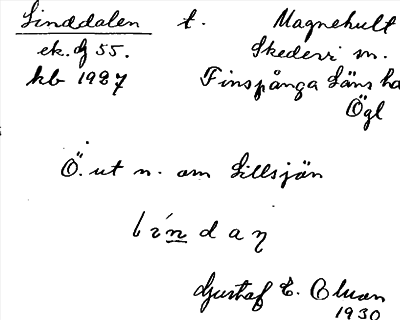 Linddalen t. Magnehult
ek. bl 55. Skedevi sn.
kb 1927 Finspånga läns
Ögl
Ö. ut n. om Lillsjön
Gustaf
1930